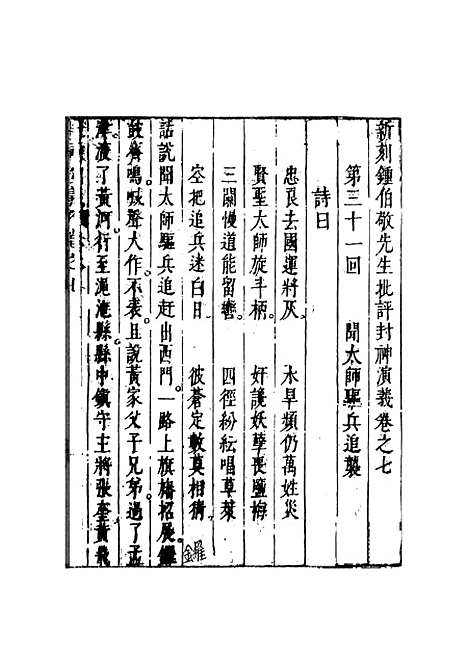 新刻鍾伯敬先生批評封神演義卷之七
第三十一回　聞太師驅兵追襲
詩曰
忠良去國運將灰　水旱頻仍萬姓災
賢聖太師旋斗柄　奸讒妖孽喪鹽梅
三關慢道能留轡　四徑紛紜唱草萊
空把追兵迷白日　彼蒼定數莫相猜
話說聞太師驅兵追趕出西門一路上旗旛招展鑼
鼓齊鳴喊聲大作不表且說黃家父子兄弟過了孟
津渡了黃河行至澠池縣縣中鎮守主將張奎黃飛